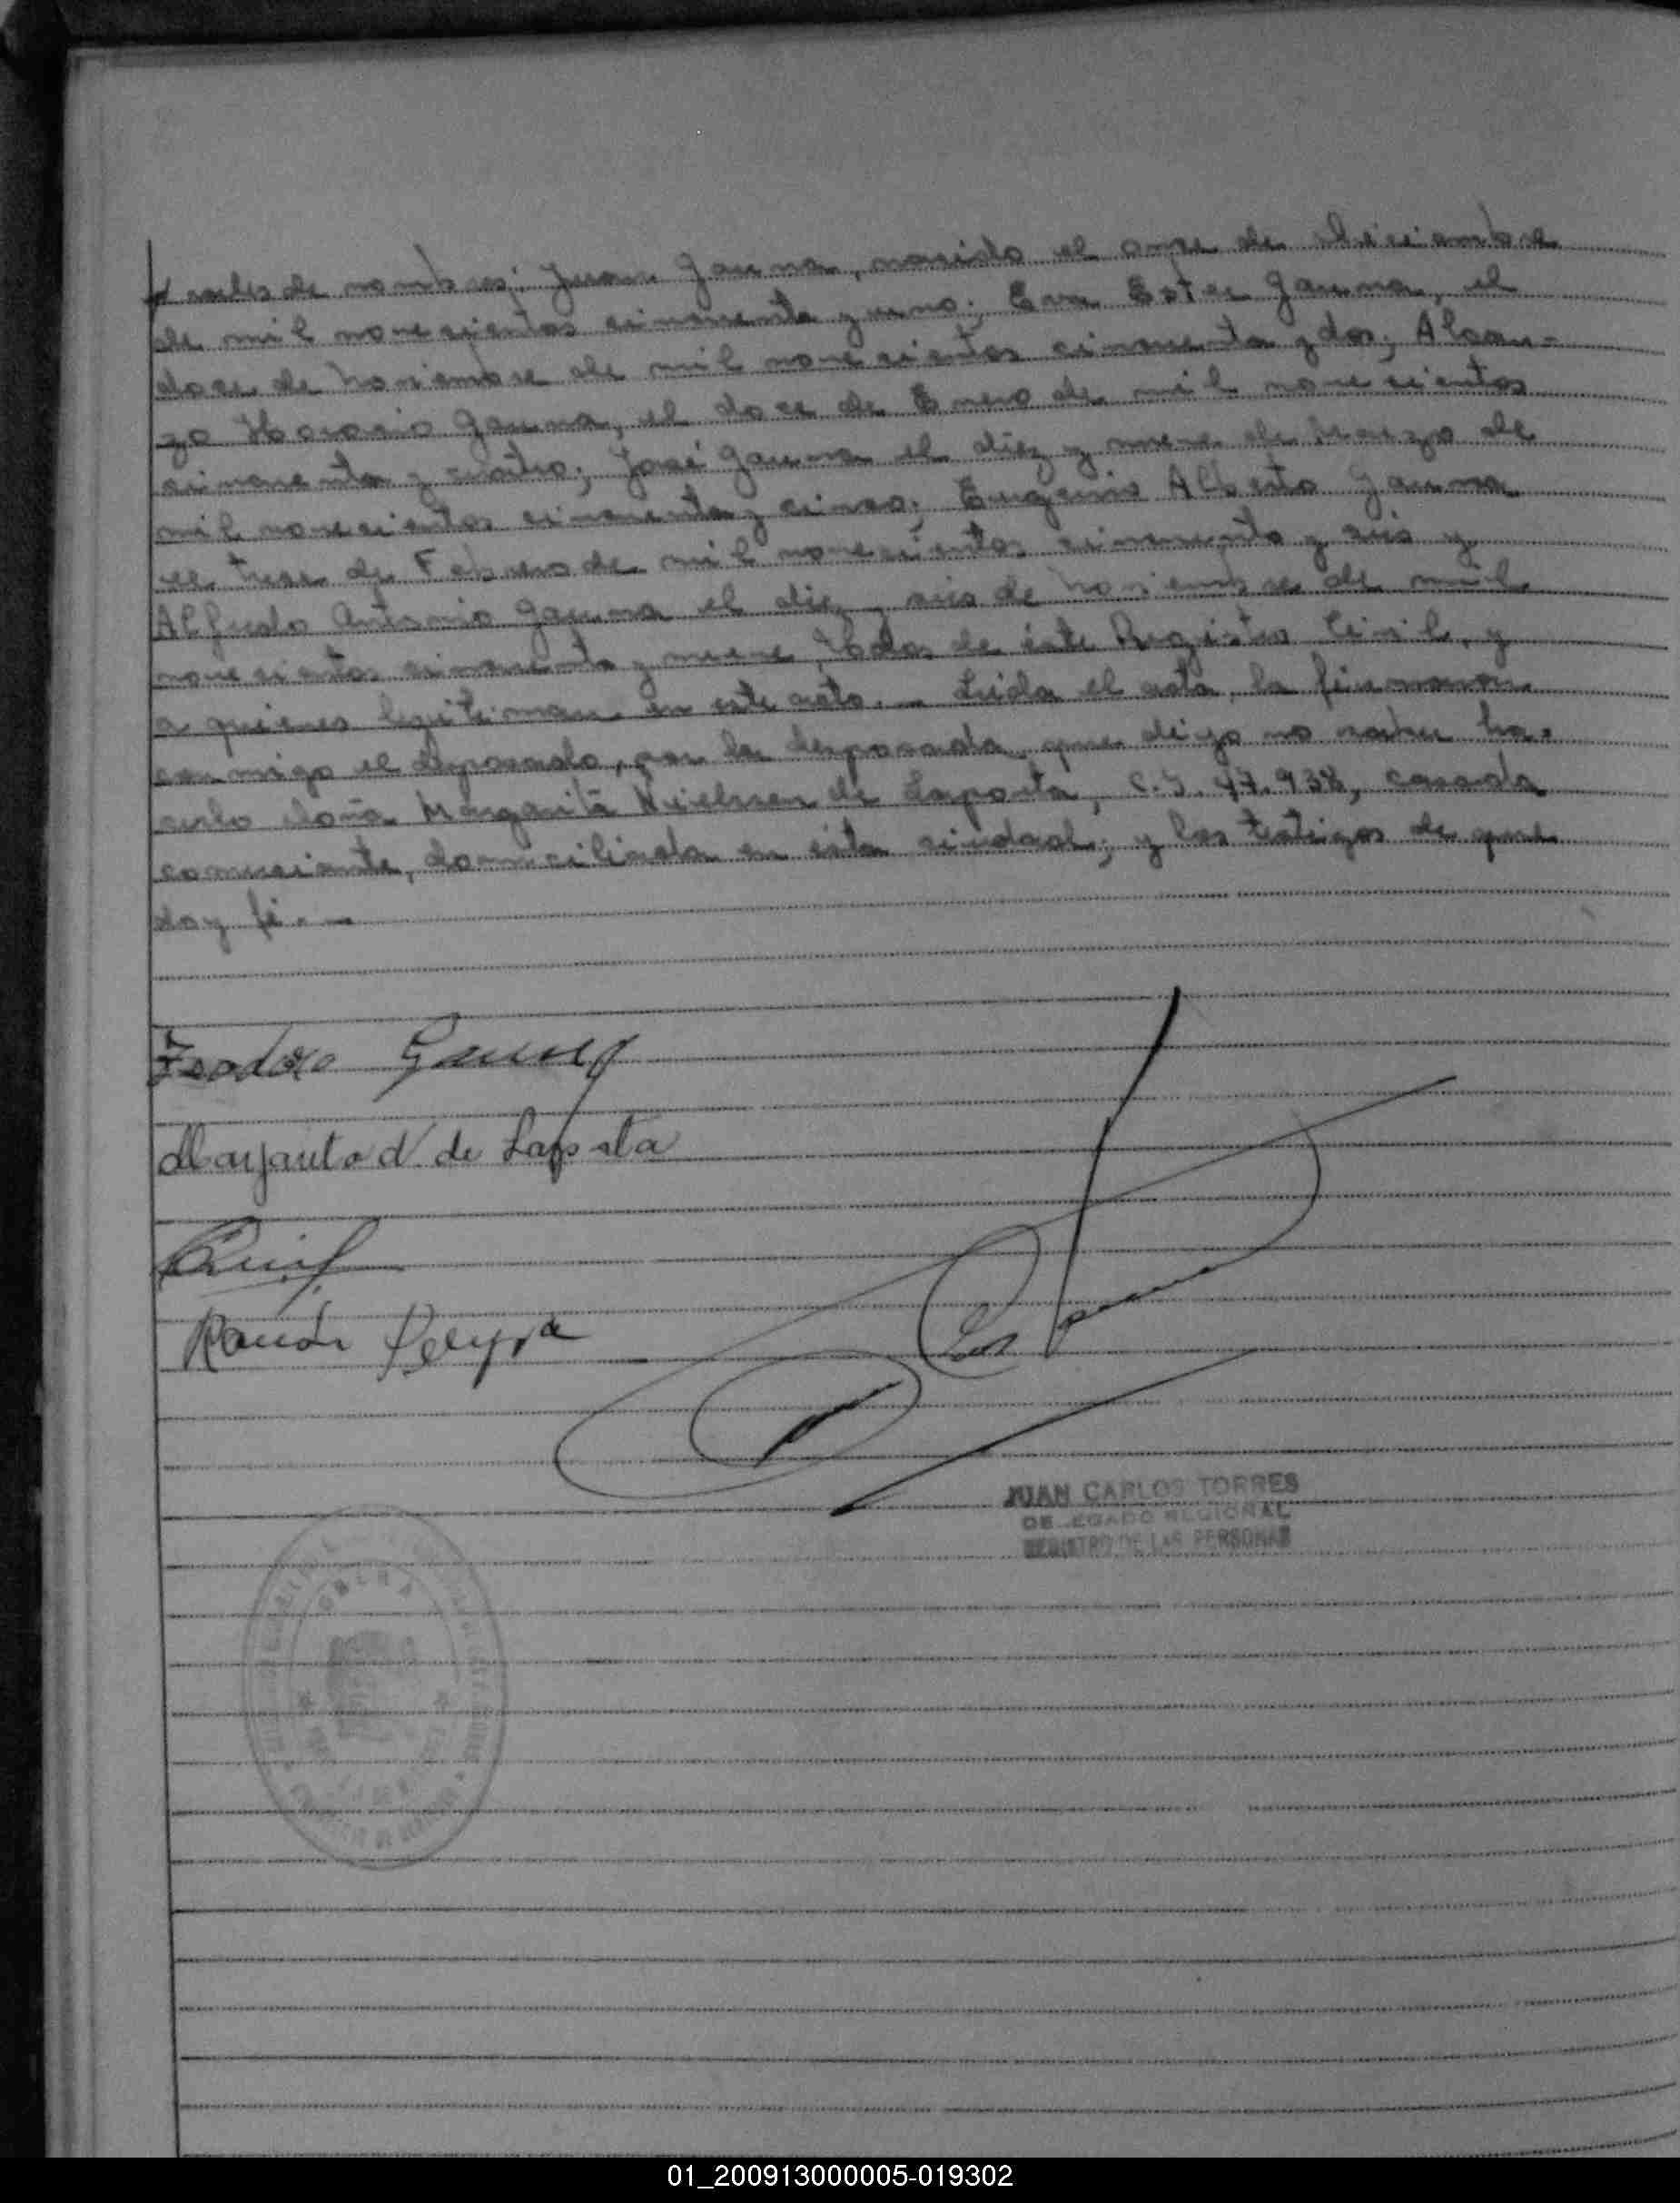 rales de nombres; Juan Gauna, nacido el once de diciembre
de mil novecientos cincuenta y uno; Eva Ester Gauna, el
doce de Noviembre de mil novecientos cincuenta y dos;
Horacio Gauna, el doce de Enero de mil novecientos
cincuenta y cuatro; José Gauna el diez y nueve de Marzo de
mil novecientos cincuenta y cinco; Eugenio Alberto Gauna
el trece de Febrero de mil novecientos cincuenta y seis y
Alfredo Antonio Gauna el diez y seis de Noviembre de mil
novecientos cincuenta y nueve, todos de éste Registro Civil, y
a quienes legitiman en este acto. — Leída el acta, la firmaron
conmigo el desposado, por la desposada que dijo no saber ha-
cerlo doña Margarita Nielssen de Laporta, C.I. 47.938, casada
comerciante, domiciliada en ésta ciudad; y los testigos de que
doy fé. —
Teodoro Gauna
Margarita N. de Laporta
Ramón Pereyra
JUAN CARLOS TORRES
DELEGADO REGIONAL
REGISTRO DE LAS PERSONAS
OBERA
01_200913000005-019302